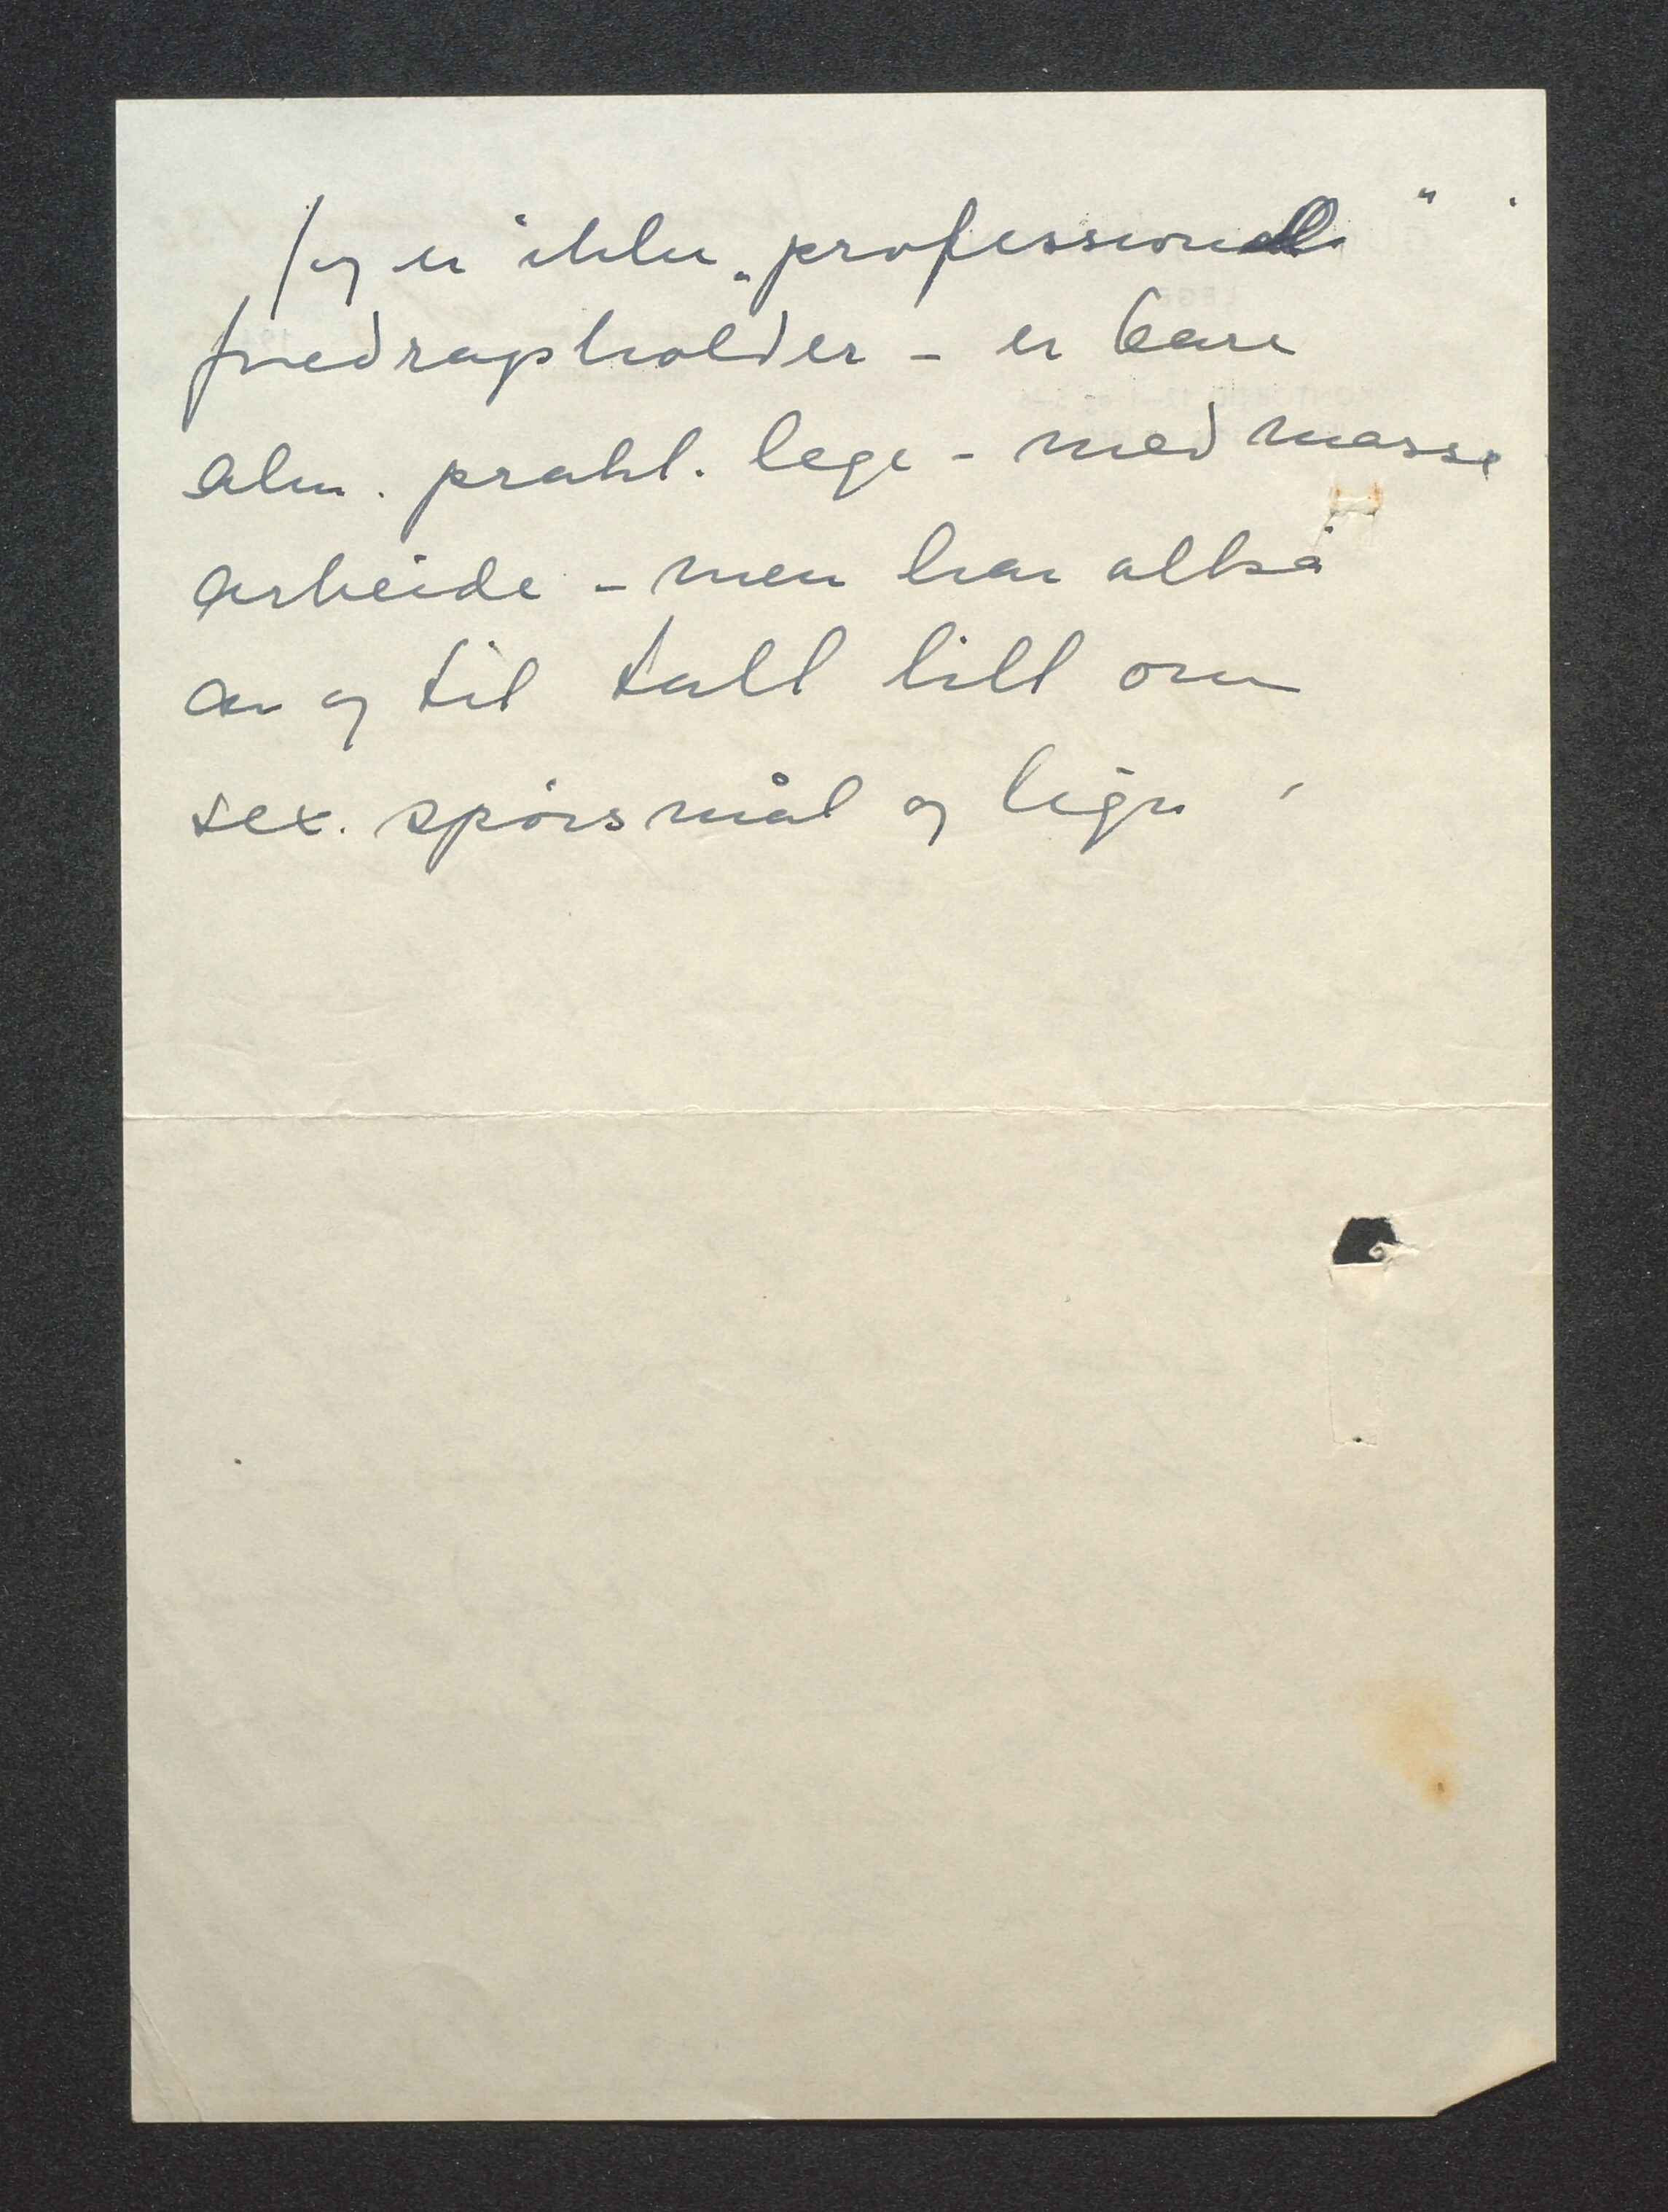 Jeg er ikke „professionell"
foredragsholder - er bare
alm. prakt. lege - med masse
arbeide - men har altså
av og til talt litt om
sex. spørsmål og lign.